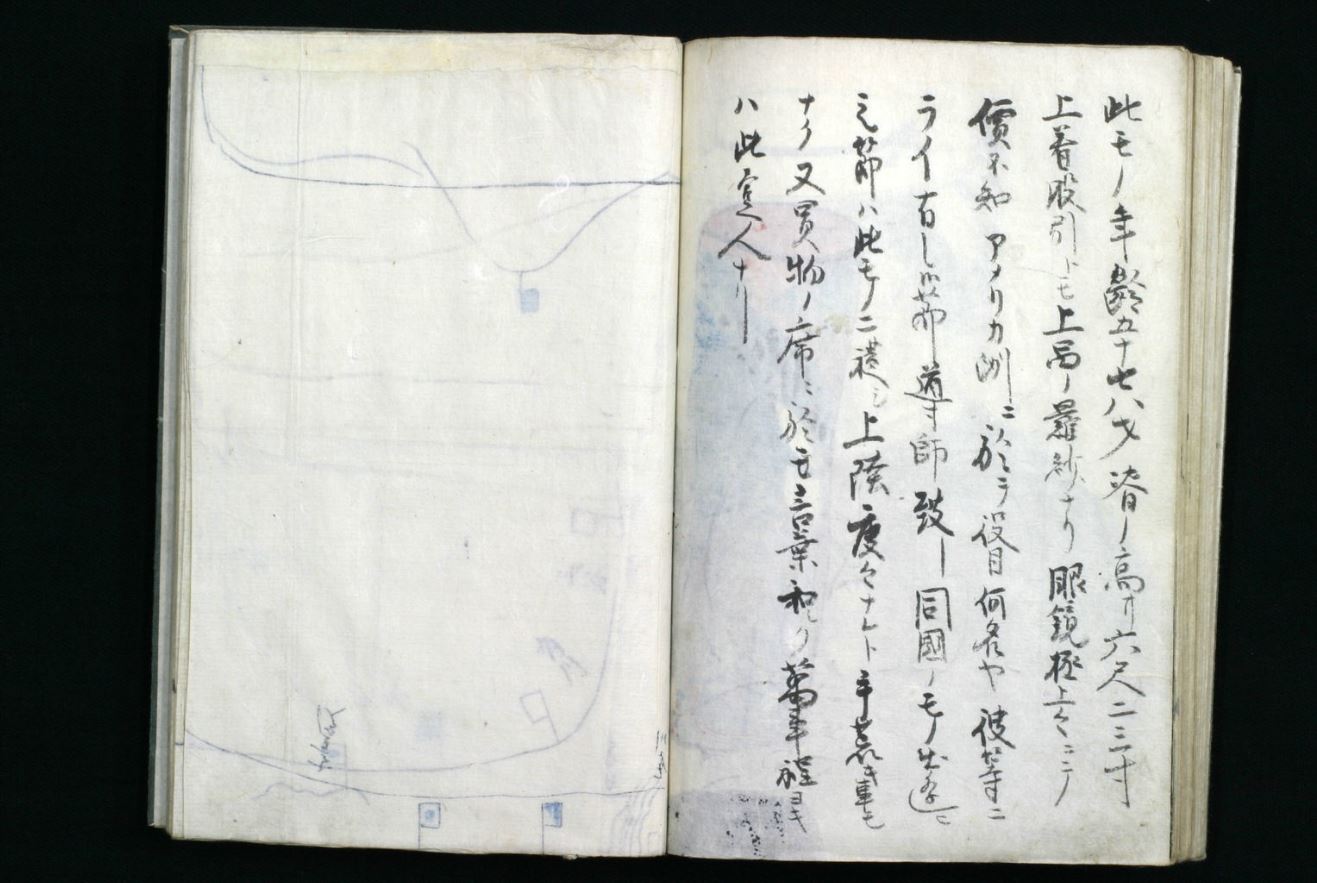 此モノ年齢五十七八才 脊ノ高サ六尺二三寸
上着股引トモ上品ノ羅紗ナリ 眼鏡極上々ニシテ
價不知 アメリカ洲ニ於テ役目何名ヤ 彼等ニ
ライ 導 師致 同國ノモノ出
之節ハ此モノニ 上陸度々ナレト 手荒キ事モ
ナク 又買物ノ席ニ於モ言葉和ク 萬事程ヨキ
ハ此壹人ナリ